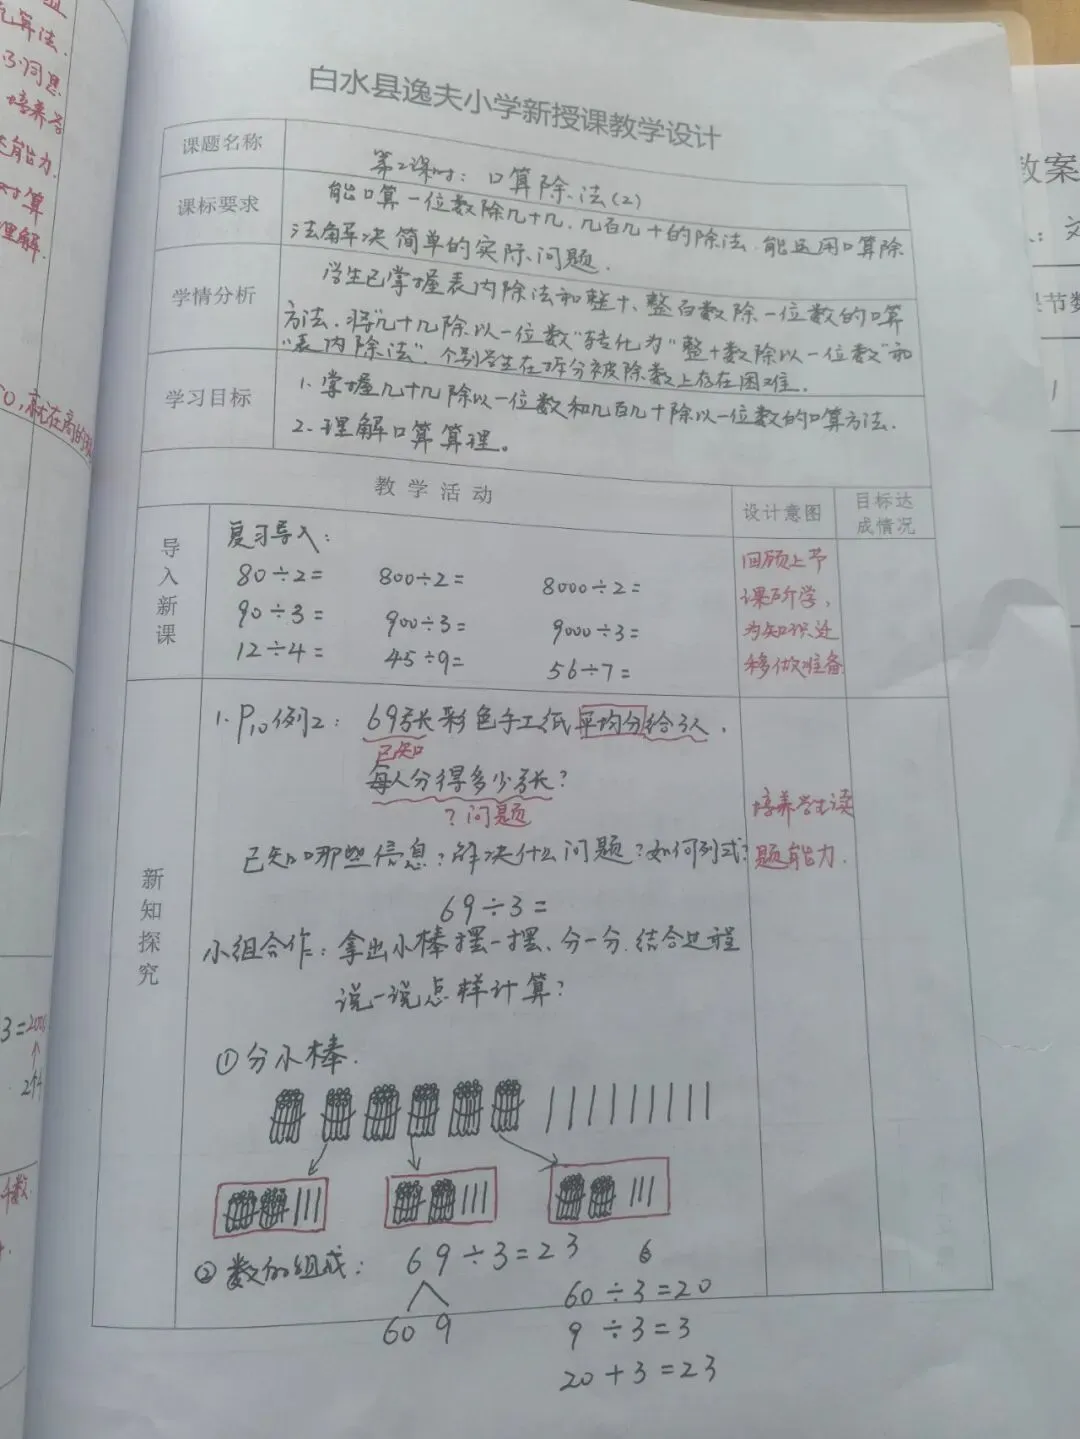 白水县逸夫小学新授课教学设计
课题名称
第2课时：口算除法(2)
课标要求
能口算一位数除几十几、几百几十的除法，能运用口算除
法解决简单的实际问题．
学情分析
学生已掌握表内除法和整十、整百数除一位数的口算
方法．将"几十几除以一位数"转化为"整十数除以一位数"和
"表内除法"．个别学生在拆分被除数上存在困难．
学习目标
1、掌握几十几除以一位数和几百几十除以一位数的口算方法．
2、理解口算算理。
教学活动
设计意图
目标达
成情况
导入新课
复习导入：
80÷2= 800÷2= 8000÷2=
90÷3= 900÷3= 9000÷3=
12÷4= 45÷9= 56÷7=
回顾上节
课所学，
为知识迁
移做准备
新知探究
1. P10例2：69张彩色手工纸平均分给3人，
已知
每人分得多少张？
？问题
已知哪些信息？解决什么问题？如何列式？
培养学生读
题能力．
69÷3=
小组合作：拿出小棒摆一摆、分一分．结合过程
说一说怎样计算？
①分小棒．
②数的组成：69÷3=23 6
60 9
60÷3=20
9÷3=3
20+3=23
算法．
培养学
能力．
对算
理解．
3=200
2个
教案
节数